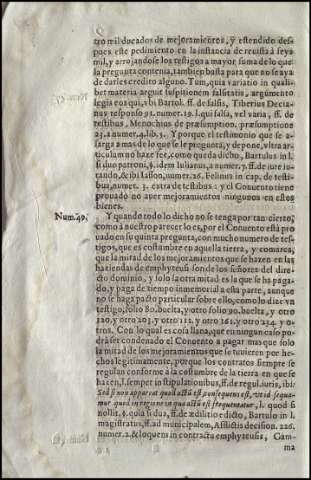 tro mil ducados de mejoramientos, y estendido des-
pues este pedimiento en la instancia de reuista à seys
mil, y arrojandose los testigos a mayor suma de lo que
la pregunta contenia, tambien basta para que no se aya
de darles credito alguno. Tum, quia variatio in quali-
bet materia arguit suspitionem falsitatis, argumento
legis eos qui, vbi Bartol. ff. de falsis, Tiberius Decia-
nus responso 91. numer. 19. l. qui falsa, vel varia, ff. de
testibus, Menochius de præsumption. præsumptione
23. a numer. 4. lib. 5. Y porque el testimonio que se a-
larga a mas de lo que se le pregunta, y depone, vltra ar-
ticulum no haze fee, como queda dicho, Bartulus in l.
si duo patroni, §. idem Iulianus, a numer. ff. de iure iur-
tando, & ibi Iason, numer. 26. Felinus in cap. de testi-
bus, numer. 3. extra de testibus: y el Conuento tiene
prouado no auer mejoramientos ningunos en estos
bienes.
Num. 49. Y quando todo lo dicho no se tenga por tan cierto,
como à nuestro parecer lo es, por el Conuento està pro
uado en su quinta pregunta, con mucho numero de tes-
tigos, que es costumbre en aquella tierra, y comarca,
que la mitad de los mejoramientos que se hazen en las
haziendas de emphyteusi son de los señores del dire-
cto dominio, y solo la otra mitad es la que se ha paga-
do, y paga de tiempo inmemorial a esta parte, aunque
no se haga pacto particular sobre ello, como lo dize vn
testigo, folio 80. buelta, y otro folio 90. buelta, y otro
220. y otro 203. y otro 212. y otro 261. y otro 234. y o-
tros. Con lo qual es cosa llana, que en ningun caso po
drà ser condenado el Conuento à pagar mas que solo
la mitad de los mejoramientos que se tuuieren por he-
chos legitimamente, porque los contratos siempre se
regulan conforme à la costumbre de la tierra en que se
hazen, l. semper in stipulationibus, ff. de regul. iuris, ibi:
Sed si non appareat quid actum est, consequens est, vt id sequa-
mur quod in regione in qua actum est frequentatur, l. quod si
nolit, §. quia si dua, ff. de ædilitio edicto, Bartulo in l.
magistratus, ff. ad municipalem, Afflictis decision. 226.
numer. 2. & loquens in contractu emphyteusis, Gam-
ma